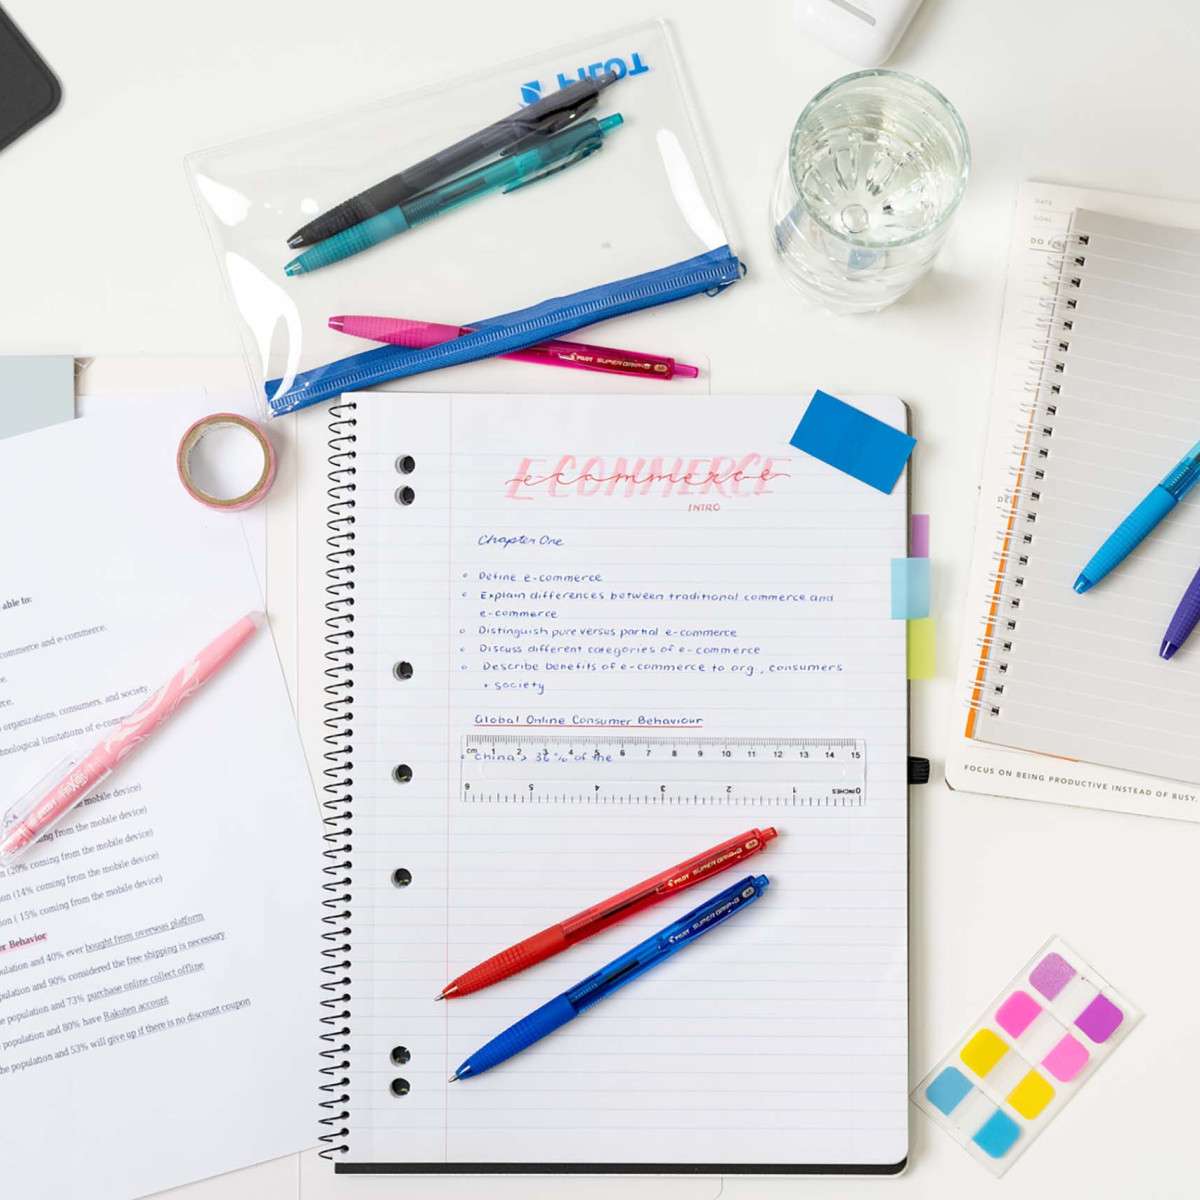 PILOT
DATE
GOAL
PILOT SUPER GRIP·G M
E-COMMERCE
e-commerce
INTRO
Chapter One
Define e-commerce
Explain differences between traditional commerce and
e-commerce
Distinguish pure versus partial e-commerce
Discuss different categories of e-commerce
Describe benefits of e-commerce to org., consumers
+ society
Global Online Consumer Behaviour
cm 1 2 3 4 5 6 7 8 9 10 11 12 13 14 15
China > 36 % of the
6 5 4 3 2 1 0 INCHES
PILOT SUPER GRIP·G M
PILOT SUPER GRIP·G M
FOCUS ON BEING PRODUCTIVE INSTEAD OF BUSY.
able to:
commerce and e-commerce.
organizations, consumers, and society
limitations of
mobile device)
coming from the mobile device)
(20% coming from the mobile device)
(14% coming from the mobile device)
( 15% coming from the mobile device)
Behavior
and 40% ever bought from overseas platform
and 90% considered the free shipping is necessary
population and 73% purchase online collect offline
population and 80% have Rakuten account
population and 53% will give up if there is no discount coupon
PILOT